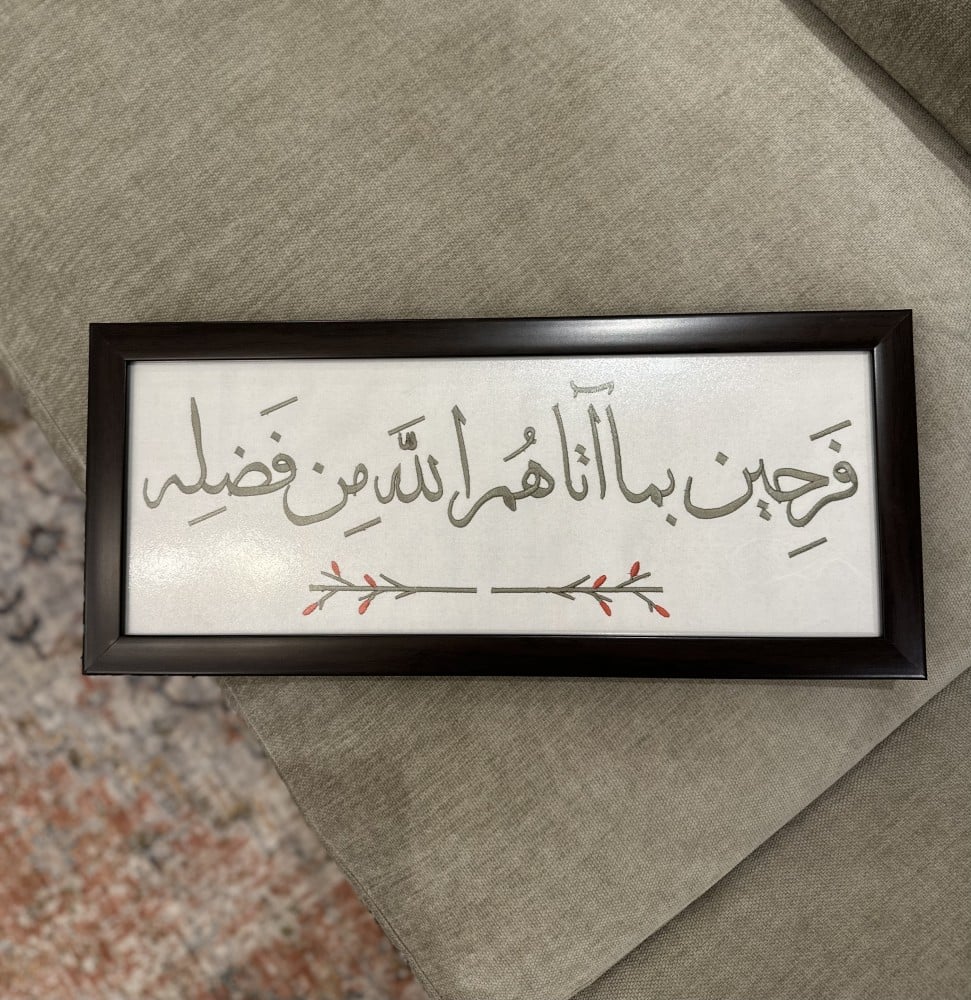 فَرِحِين بما آاتاهُم اللَّه مِن فَضلِه